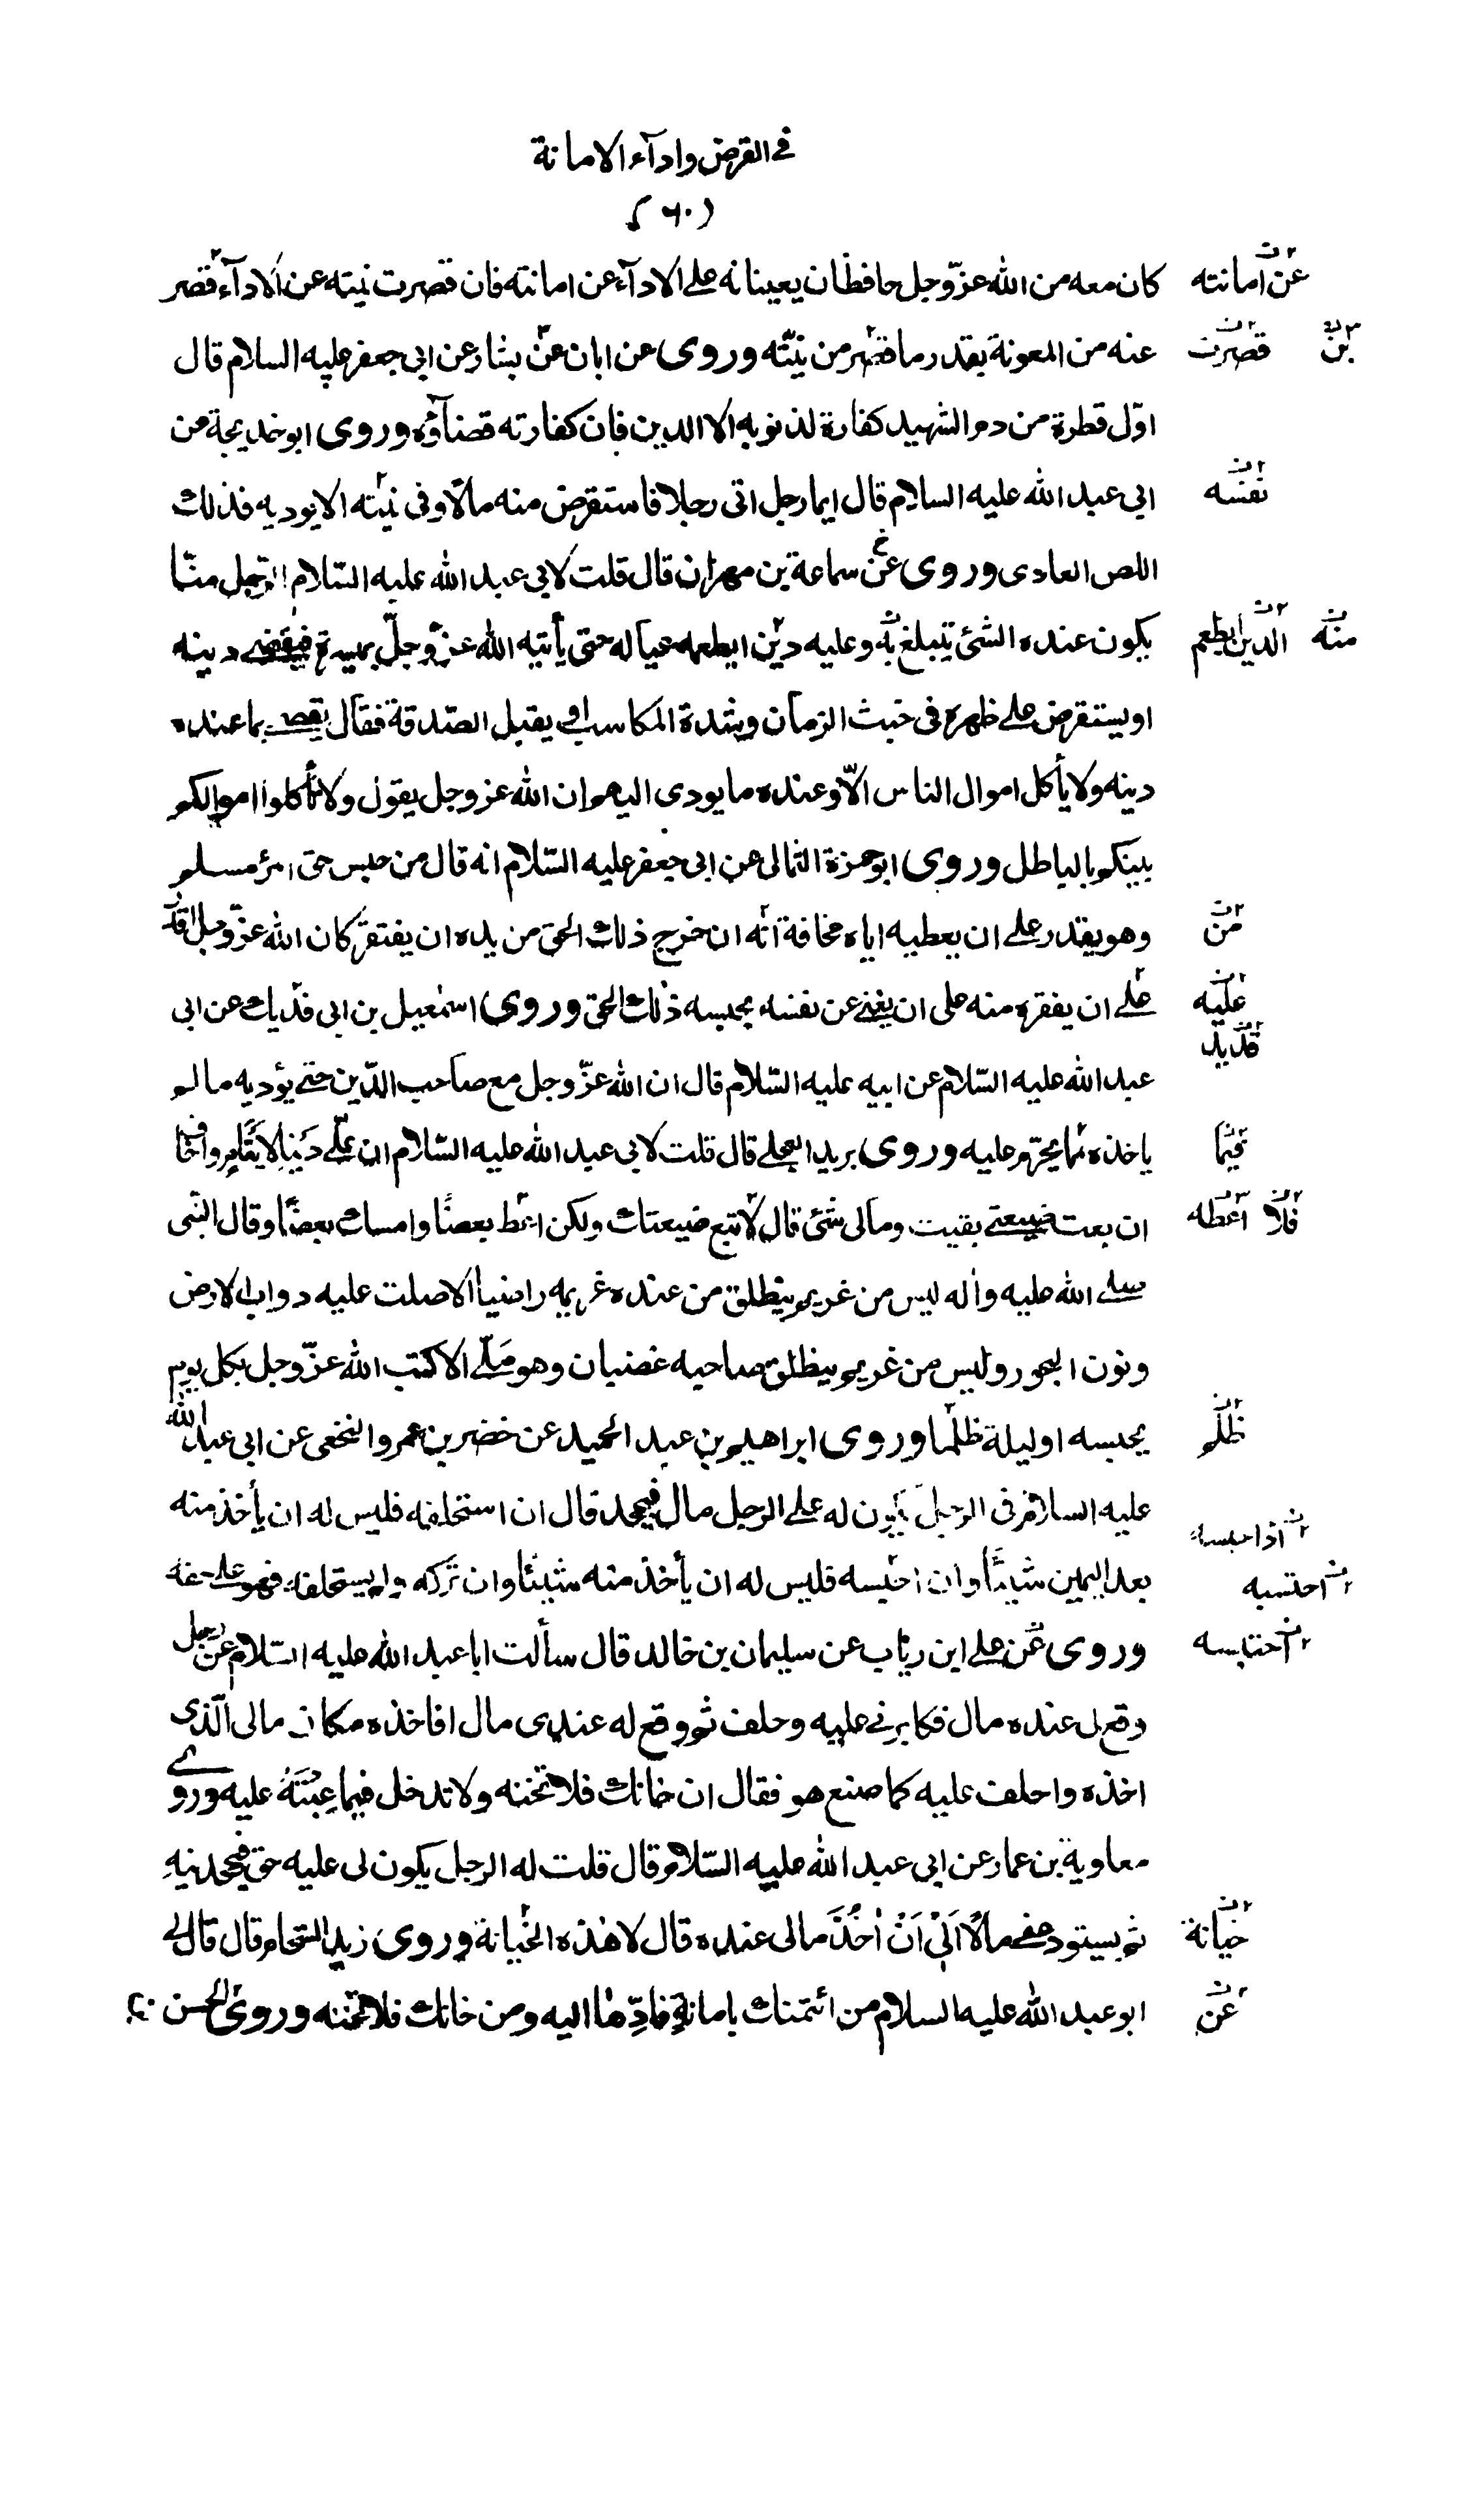 في القرض واداء الامانة
(٦٠)
كان معه من الله عزّوجل حافظان يعينانه على الادآء عن امانته فان قصرت نيته عن الادآء قصر
عن امانته
عنه من المعونة بقدر ما قصر من نيّته وروى عن ابان عن بشار عن ابى جعفر عليه السلام قال
قصرت
بن
اوّل قطرة من دم الشهيد كفارة لذنوبه الا الدين فان كفارته قضآؤه وروى ابو خديجة عن
ابى عبد الله عليه السلام قال ايما رجل اتى رجلا فاستقرض منه مالا وفى نيّته الا يوديه فذلك
نفسه
اللص العادى وروى عن سماعة بن مهران قال قلت لابى عبد الله عليه السّلام الرّجل منّا
يكون عنده الشئ يتبلغ به وعليه دين ايطعمه عياله حتى يأتيه الله عزّ وجلّ بميسرة فيقضى دينه
الدّين ايطعم
منه
او يستقرض على ظهره فى خبث الزمان وشدة المكاسب او يقبل الصّدقة فقال يقضى بما عنده
دينه ولا يأكل اموال الناس الّا وعنده ما يودى اليهم ان الله عز وجل يقول ولا تأكلوا اموالكم
بينكم بالباطل وروى ابو حمزة الثمالى عن ابى جعفر عليه السّلام انه قال من حبس حق امرئ مسلم
وهو يقدر على ان يعطيه اياه مخافة انّه ان خرج ذلك الحق من يده ان يفتقر كان الله عزّوجل اقدر
من
على ان يفقره منه على ان يغنى عن نفسه بحبسه ذلك الحق وروى اسمعيل بن ابى فديك عن ابى
عليه
قديد
عبد الله عليه السّلام عن ابيه عليه السّلام قال ان الله عزّ وجل مع صاحب الدّين حتى يؤديه ما لم
ياخذه مما يحرّم عليه وروى بريد العجلى قال قلت لابى عبد الله عليه السّلام ان علىّ دينا لايتام واخاف
فيما
ان بعت ضيعتى بقيت ومالى شئ قال لا تبع ضيعتك ولكن اعط بعضًا وامسك بعضًا وقال النبى
اعطه
فلا
صلى الله عليه واله ليس من غريم ينطلق من عنده غريمه راضيا الا صلت عليه دواب الارض
ونون البحور وليس من غريم ينطلق صاحبه غضبان وهو ملّى الا كتب الله عزّوجل بكل يوم
يحبسه او ليلة ظلما وروى ابراهيم بن عبد الحميد عن خضر بن عمرو النخعى عن ابى عبد الله
ظلم
عليه السلام فى الرجل يكون له على الرجل مال فيجحد قال ان استحلفه فليس له ان يأخذ منه
اذا حبسه
بعد اليمين شيئًا وان احبسه فليس له ان يأخذ منه شيئًا وان تركه ولم يستحلفه فهو على حقه
احتسبه
وروى عن على ابن رياب عن سليمان بن خالد قال سألت ابا عبد الله عليه السّلام عن رجل
احتبسه
وقع لى عنده مال فكابرنى عليه وحلف ثم وقع له عندى مال افاخذه مكان مالى الّذى
اخذه واحلف عليه كما صنع هو فقال ان خانك فلا تخنه ولا تدخل فيما عبته عليه وروى
معاوية بن عمار عن ابى عبد الله عليه السّلام قال قلت له الرجل يكون لى عليه حق فيجحدنيه
ثم يستودعنى مالًا اَلىَ اَنْ اٰخُذَ مالى عنده قال لا هذه الخيانة وروى زيد الشحام قال قال لى
خيانة
ابو عبد الله عليه السلام من ائتمنك بامانةٍ فادّها اليه ومن خانك فلا تخنه وروى الحسن
عن